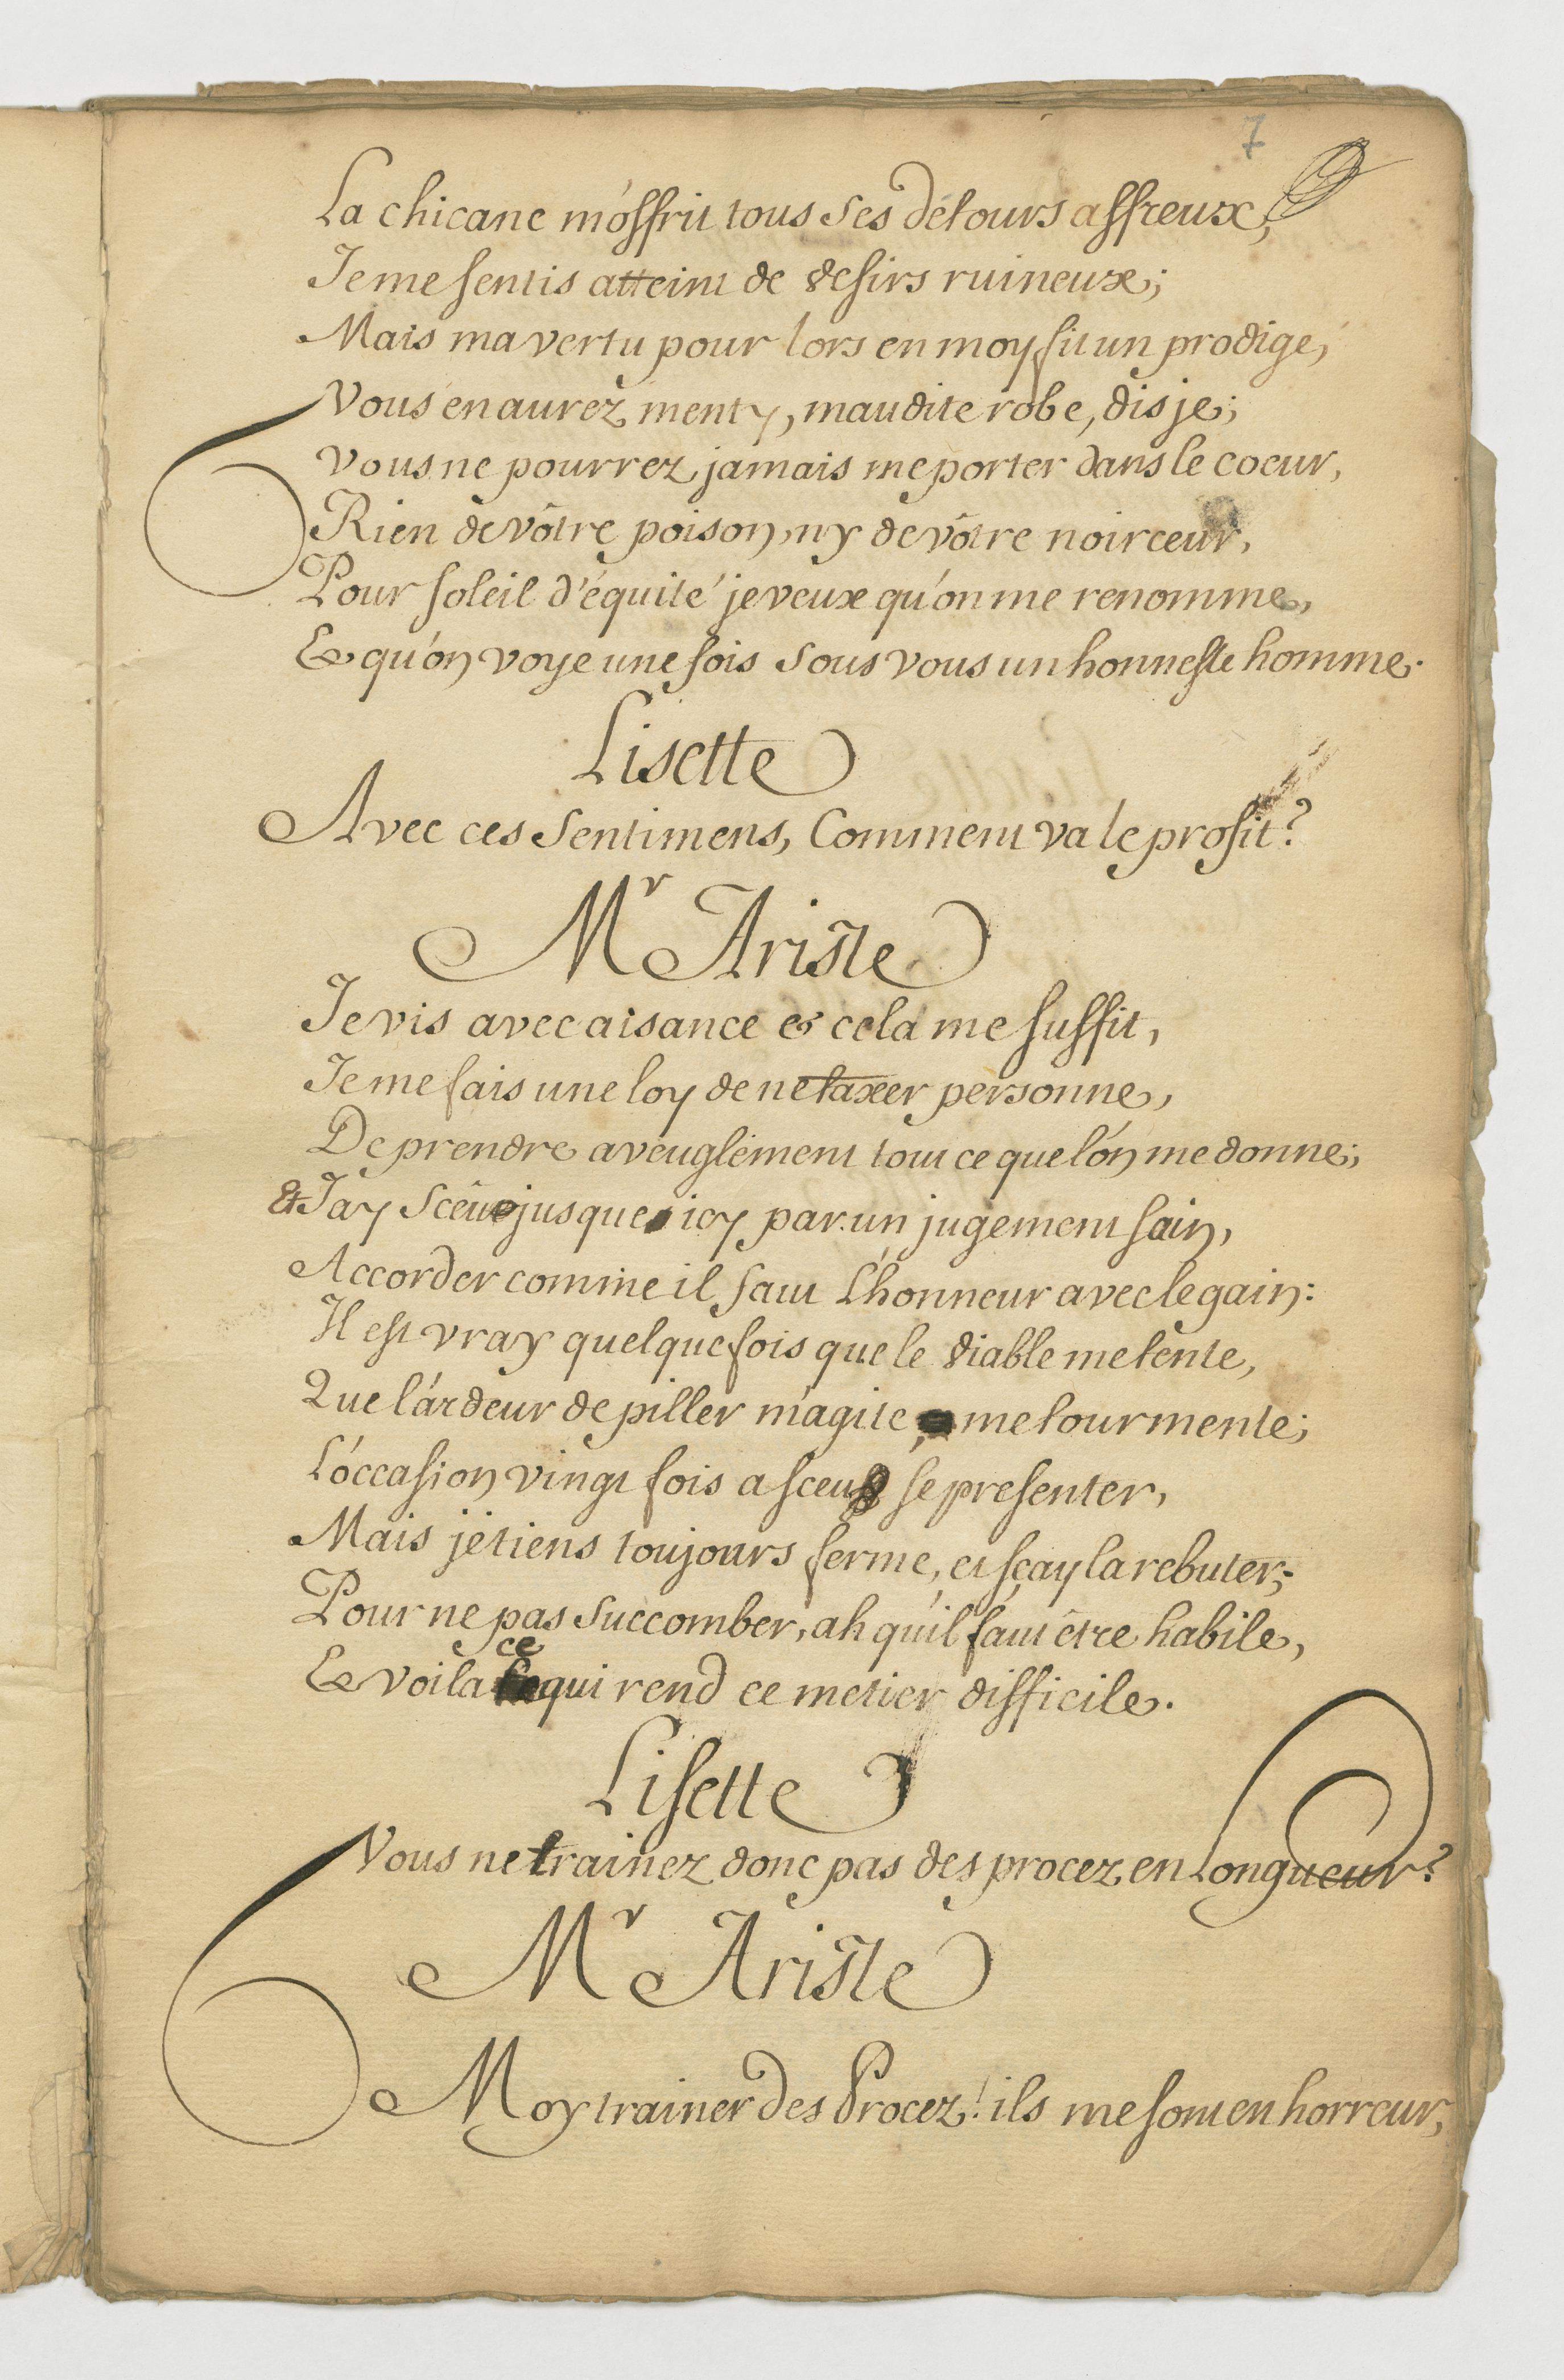 7
La chicane m'offrit tous ses détours affreux,
Je me sentis atteint de desirs ruineux;
Mais ma vertu pour lors en moy fit un prodige,
Vous en aurez menty, maudite robe, dis je;
Vous ne pourrez jamais me porter dans le coeur,
Rien de vôtre poison, ny de vôtre noirceur,
Pour soleil d'équité je veux qu'on me renomme,
Et qu'on voye une fois sous vous un honneste homme.
Lisette
Avec ces Sentimens, Comment va le profit?
Mr Ariste
Je vis avec aisance & cela me suffit,
Je me fais une loy de ne taxer personne,
De prendre aveuglément tout ce que l'on me donne;
Et J'ay Sceu jusque icy par un jugement sain,
Accorder comme il faut l'honneur avec le gain:
Il est vray quelque fois que le diable me tente,
Que l'ardeur de piller m'agite, me tourmente;
L'occasion vingt fois a sceu se presenter,
Mais je tiens toujours ferme, et sçay la rebuter;
Pour ne pas Succomber, ah qu'il faut être habile,
Et voila ce qui rend ce metier difficile.
Lisette
Vous ne trainez donc pas des procez en Longueur?
Mr Ariste
Moy trainer des Procez! ils me sont en horreur,